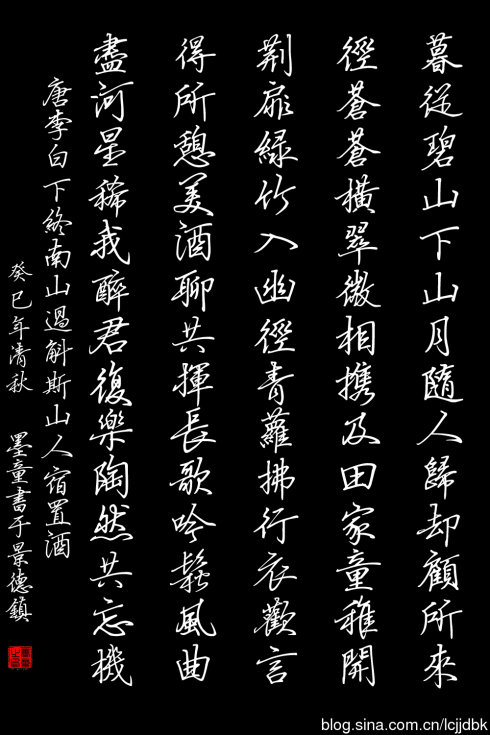 暮從碧山下山月隨人歸却顧所來
徑蒼蒼橫翠微相携及田家童稚開
荆扉綠竹入幽徑青蘿拂行衣歡言
得所憩美酒聊共揮長歌吟鬆風曲
盡河星稀我醉君復樂陶然共忘機
唐李白下終南山過斛斯山人宿置酒
癸巳年清秋 墨童書于景德鎮
blog.sina.com.cn/lcjjdbk